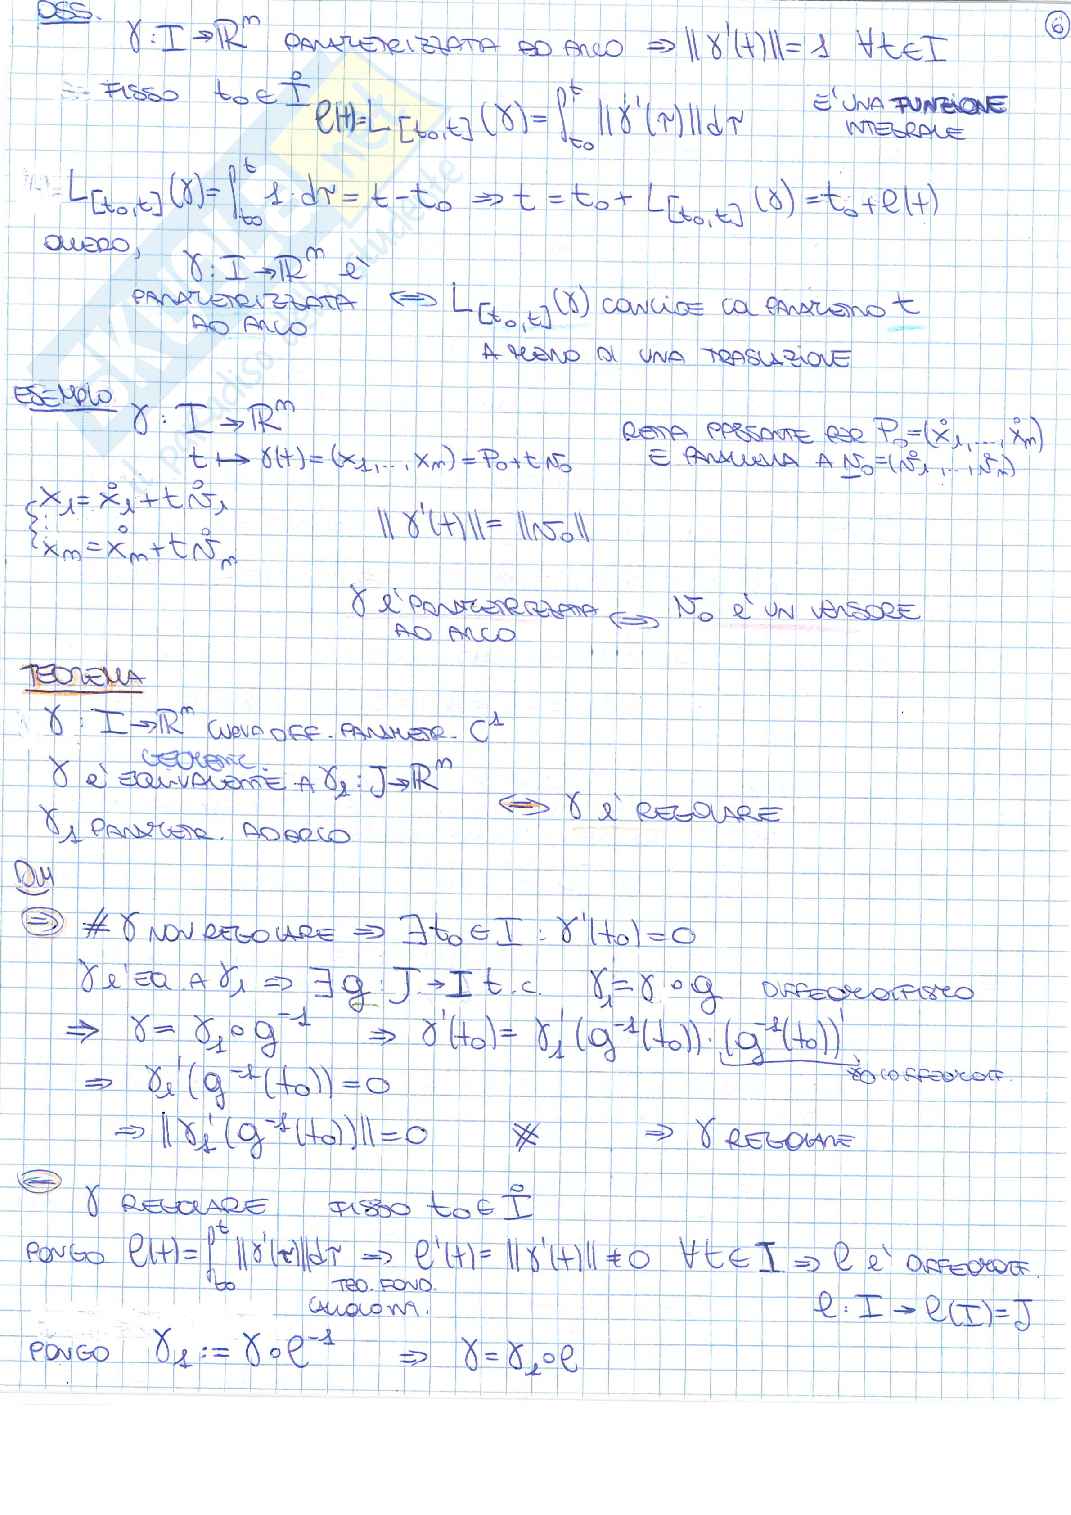 OSS.
6
γ : I → ℝⁿ PARAMETRIZZATA AD ARCO ⇒ ||γ'(t)|| = 1 ∀t ∈ I
FISSO t₀ ∈ I̊
ℓ(t) = L[t₀,t](γ) = ∫_{t₀}^{t} ||γ'(τ)|| dτ È UNA FUNZIONE INTEGRALE
L[t₀,t](γ) = ∫_{t₀}^{t} 1·dτ = t - t₀ ⇒ t = t₀ + L[t₀,t](γ) = t₀ + ℓ(t)
OVVERO,
γ : I → ℝⁿ è
PARAMETRIZZATA AD ARCO ⇔ L[t₀,t](γ) COINCIDE COL PARAMETRO t
A MENO DI UNA TRASLAZIONE
ESEMPIO
γ : I → ℝⁿ
RETTA PASSANTE PER P₀ = (x̊₁, ..., x̊ₙ)
t ↦ γ(t) = (x₁, ..., xₙ) = P₀ + t v₀
E PARALLELA A v₀ = (v̊₁, ..., v̊ₙ)
{ x₁ = x̊₁ + t v̊₁
⋮
xₙ = x̊ₙ + t v̊ₙ
||γ'(t)|| = ||v₀||
γ è PARAMETRIZZATA AD ARCO ⇔ v₀ è UN VERSORE
TEOREMA
γ : I → ℝⁿ CURVA DIFF. PARAMETR. C¹
GEOMETRIC.
γ è EQUIVALENTE A γ₁ : J → ℝⁿ
⇔ γ è REGOLARE
γ₁ PARAMETR. AD ARCO
DIM
⇒ # γ NON REGOLARE ⇒ ∃ t₀ ∈ I : γ'(t₀) = 0
γ è EQ. A γ₁ ⇒ ∃ g : J → I t.c. γ₁ = γ ∘ g DIFFEOMORFISMO
⇒ γ = γ₁ ∘ g⁻¹ ⇒ γ'(t₀) = γ₁'(g⁻¹(t₀)) · (g⁻¹(t₀))'
≠0 DIFFEOMORF.
⇒ γ₁'(g⁻¹(t₀)) = 0
⇒ ||γ₁'(g⁻¹(t₀))|| = 0 ※ ⇒ γ REGOLARE
⇐
γ REGOLARE FISSO t₀ ∈ I̊
PONGO ℓ(t) = ∫_{t₀}^{t} ||γ'(τ)|| dτ ⇒ ℓ'(t) = ||γ'(t)|| ≠ 0 ∀t ∈ I ⇒ ℓ è DIFFEOMORF.
TEO. FOND. CALCOLO INT.
ℓ : I → ℓ(I) = J
PONGO γ₁ := γ ∘ ℓ⁻¹ ⇒ γ = γ₁ ∘ ℓ